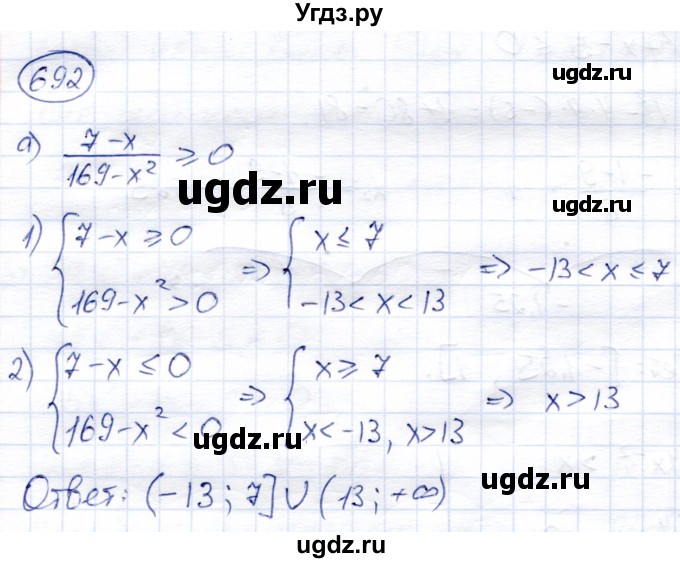 Угдз.ру
692
ugdz.ru
а) (7-x)/(169-x²) ⩾ 0
ugdz.ru
ugdz.ru
1) { 7-x ⩾ 0 ; 169-x² > 0 ⇒ { x ≤ 7 ; -13 < x < 13 ⇒ -13 < x ≤ 7
2) { 7-x ≤ 0 ; 169-x² < 0 ⇒ { x ⩾ 7 ; x < -13, x > 13 ⇒ x > 13
ugdz.ru
ugdz.ru
Ответ: (-13; 7] ∪ (13; +∞)
ugdz.ru